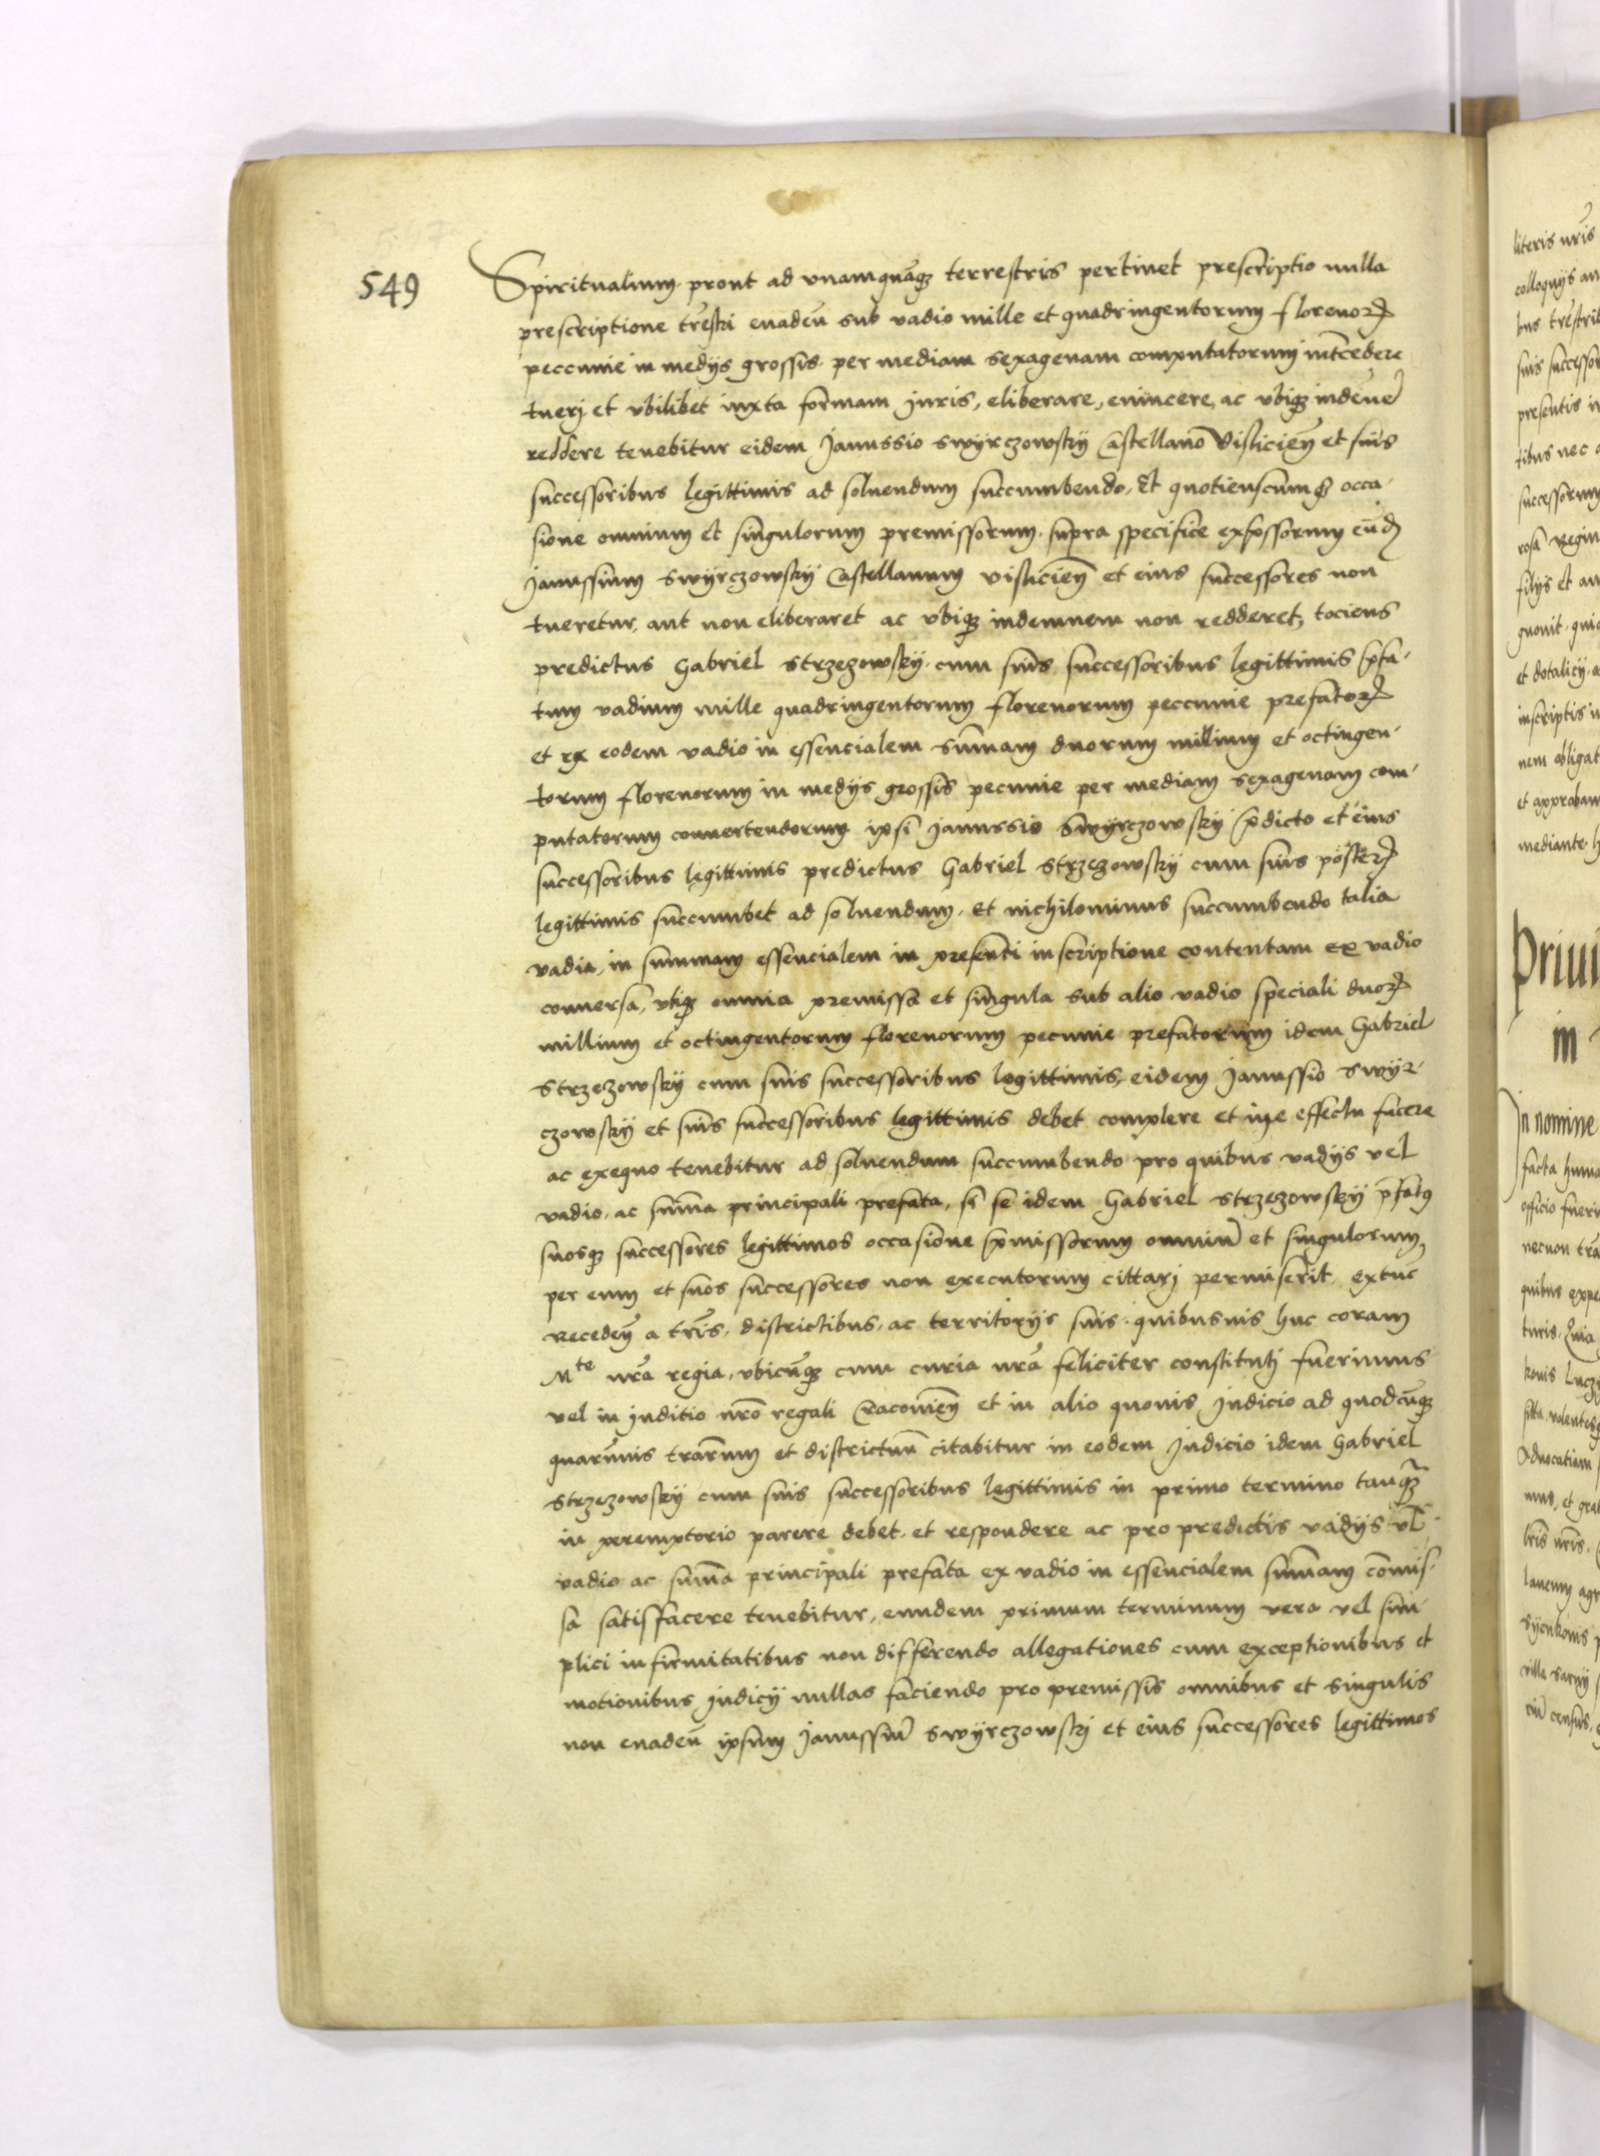 549
Spiritualium prout ad unamquāq₃ terrestris pertinet prescriptio nulla
prescriptione tr̄estri evadeñ sub vadio mille et quadringentorum florenorꝝ
peccunie in medijs grossis per mediam sexagenam computatorum intˉcedere
tuerj et ubilibet iuxta formam juris, eliberare, evincere, ac ubiq₃ indēne
reddere tenebitur eidem Janussio Swyrczowsky Castellano Visliciēn̄ et suis
successoribus legittimis ad solvendum succumbendo, Et quotienscumq₃ occa-
sione omnium et singulorum premissorum supra specifice expressorum eūdē
Janussium Swyrczowsky Castellanum visliciēn̄ et eius successores non
tueretur, aut non eliberaret ac ubiq₃ indemnem non redderet, tociens
predictus Gabriel Strzezowsky cum suis successoribus legittimis p̄fa-
tum vadium mille quadringentorum florenorum peccunie prefatorꝝ
et ex eodem vadio in essencialem summam duorum millium et octingen-
torum florenorum in medijs grossis pecunie per mediam sexagenam com-
putatorum convertendorum ipsi Janussio Swyrczowsky p̄dicto et eius
successoribus legittimis predictus Gabriel Strzezowsky cum suis posterꝝ
legittimis succumbet ad solvendum. Et nichilominus succumbendo talia
vadia, in summam essencialem in presenti inscriptione contentam ex vadio
conversa, ubiq₃ omnia premissa et singula sub alio vadio speciali duorꝝ
millium et octingentorum florenorum pecunie prefatorum idem Gabriel
Strzezowsky cum suis successoribus legittimis, eidem Janussio Swyr-
czowsky et suis successoribus legittimis debet complere et in effectu facere
ac exequo tenebitur ad solvendum succumbendo pro quibus vadijs vel
vadio, ac sum̄a principali prefata, si se idem Gabriel Strzezowsky p̄fatꝰ
suosq₃ successores legittimos occasione p̄missorum omniū et singulorum
per eum et suos successores non executorum cittarj permiserit extūc
Recedeñ a tr̄is, districtibus, ac territorijs suis quibusvis huc coram
Mte nr̄a regia, ubicūq₃ cum curia nr̄a feliciter constitutj fuerimus
vel in juditio nr̄o regali Cracovieñ et in alio quovis Judicio ad quodcūq₃
quarūvis trārum et districtuū citabitur in eodem Judicio idem Gabriel
Strzezowsky cum suis successoribus legittimis in primo termino tanq₃
in peremptorio parere debet et respondere ac pro predictis vadijs vl̄
vadio ac sum̄a principali prefata ex vadio in essencialem sum̄am com̄is-
sa satisfacere tenebitur, eundem primum terminum vera vel sim-
plici infirmitatibus non differendo allegationes cum exceptionibus et
motionibus judicij nullas faciendo pro premissis omnibus et singulis
non evadeñ ipsum Janussiū Swyrczowskj et eius successores legittimos
literis nr̄is
Privi
in
In nomine
facta huma
mediante